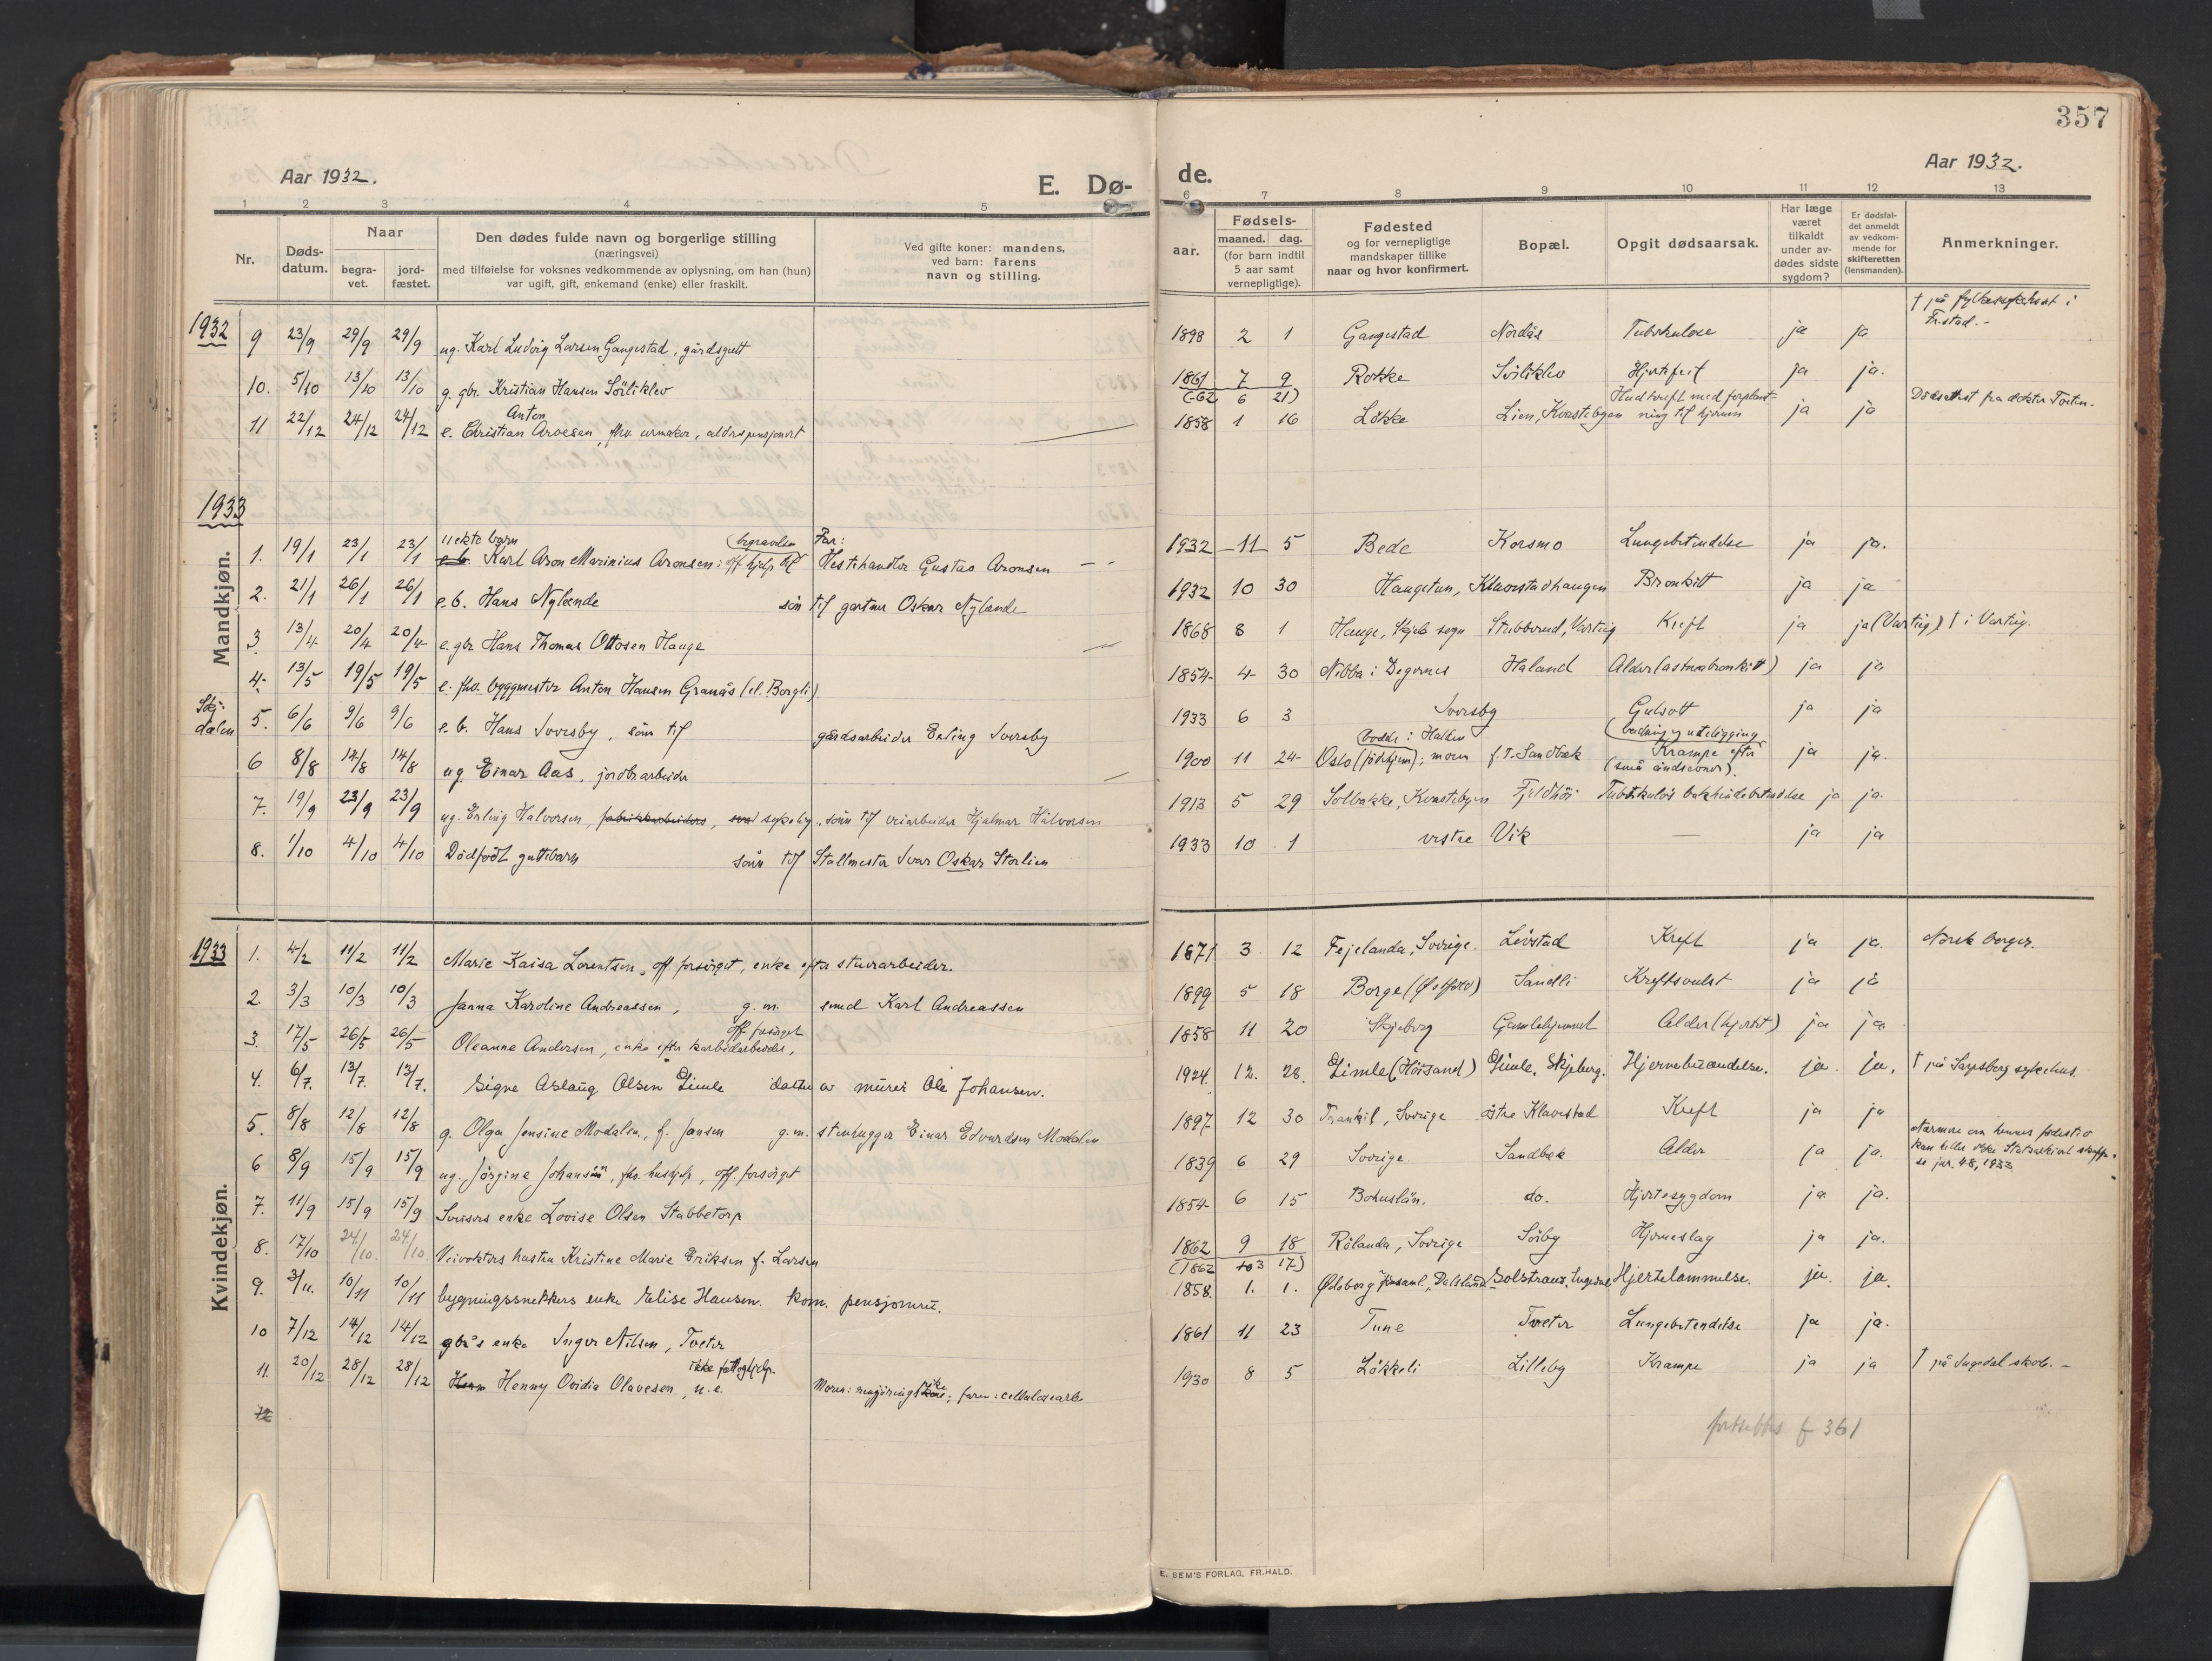 357
Aar 1932.
E. Dø-
de.
Aar 1932.
1 2 3 4 5 6 7 8 9 10 11 12 13
Nr.
Døds-
datum.
Naar
begra-
vet.
jord-
fæstet.
Den dødes fulde navn og borgerlige stilling
(næringsvei)
med tilføielse for voksnes vedkommende av oplysning, om han (hun)
var ugift, gift, enkemand (enke) eller fraskilt.
Ved gifte koner: mandens,
ved barn: farens
navn og stilling.
Fødsels-
aar.
maaned. dag.
(for barn indtil
5 aar samt
vernepligtige).
Fødested
og for vernepligtige
mandskaper tillike
naar og hvor konfirmert.
Bopæl.
Opgit dødsaarsak.
Har læge
været
tilkaldt
under av-
dødes sidste
sygdom?
Er dødsfal-
det anmeldt
av vedkom-
mende for
skifteretten
(lensmanden).
Anmerkninger.
1932
9 23/9 29/9 29/9 ug. Karl Ludvig Larsen Gangestad, gårdsgutt 1898 2 1 Gangestad Nordås Tuberkulose ja ja † på fylkessykehuset i
Fr.stad.-
10. 5/10 13/10 13/10 g. gbr. Kristian Hansen Sörliklev 1861 7 9 Rokke Sörliklev Hjertefeil ja ja.
(-62 6 21)
11 22/12 24/12 24/12 e. Christian Anton Aroesen, fhv. urmaker, alderspensjonert 1858 1 16 Lökke Lien, Kvastebyen Hudkreft med forplant-
ning til hjernen ja ja Dödsattest fra doktor
1933
Mandkjøn.
1. 19/1 23/1 23/1 uekte barn Karl Aron Marinius Aronsen: begravelse off hjelp til Far:
Hestehandler Gustav Aronsen 1932 11 5 Bede Korsmo Lungebetendelse ja ja.
2. 21/1 26/1 26/1 e.b. Hans Nylende sön til gartner Oskar Nylende 1932 10 30 Haugetun, Klavestadhaugen Bronkitt ja ja
3. 13/4 20/4 20/4 e. gbr Hans Thomas Ottosen Hauge 1868 8 1 Hauge, Skjeb. sogn Stubberud, Varteig Kreft ja ja (Varteig) † i Varteig.
4. 13/5 19/5 19/5 e. fhv. byggmester Anton Hansen Granås (el. Borgli) 1854 4 30 Nibba i Degernes Haland Alder (astmabronkitt) ja ja
5. 6/6 9/6 9/6 e.b. Hans Iversby, sönn til gårdsarbeider Erling Iversby 1933 6 3 Iversby Gulsott ja ja
6 8/8 14/8 14/8 ug Einar Aas, jordbrarbeider 1900 11 24 bodde i Halden
Oslo (födehjem); moren f. T. Sandbæk Krampe efter
(små åndsevner). ja ja.
7. 19/9 23/9 23/9 ug. Erling Halvorsen, fabrikkarbeiders, sykelig, sönn til veiarbeider Hjalmar Halvorsen 1913 5 29 Solbakke, Kvastebyen Fjeldhöi Tuberkulös ja ja.
8. 1/10 4/10 4/10 Dödfödt guttebarn sönn til Stallmester Ivar Oskar Storlien 1933 10 1 vestre Vik — ja ja
1933
Kvindekjøn.
1. 4/2 11/2 11/2 Marie Kaisa Lorentsen, off. forsörget, enke efter stuerarbeider. 1871 3 12 Fejelanda, Sverige. Lövstad Kreft ja ja. Norsk borger.
2. 3/3 10/3 10/3 Janna Karoline Andreassen, g. m. smed Karl Andreassen 1899 5 18 Borge (Østfold) Sandli Kreftsvulst ja ja
3. 17/5 26/5 26/5 Oleanne Andersen, enke efter karbidarbeider, off. forsörget 1858 11 20 Skjeberg Gamlehjemmet Alder (hjertet) ja ja.
4. 6/7. 13/7. 13/7. Signe Aslaug Olsen Gimle datter av murer Ole Johansen. 1924. 12. 28. Gimle (Höisand) Gimle, Skjeberg. Hjernebetændelse. ja. ja. † på Sarpsborg sykehus.
5. 8/8 12/8 12/8 g. Olga Jensine Modalen, f. Jansen g.m. stenhugger Einar Edvardsen Modalen 1897 12 30 Trankil, Sverige östre Klavestad Kreft ja ja
6 8/9 15/9 15/9 ug. Jörgine Johansen, fhv. hushjelp, off. forsörget 1839 6 29 Sverige. Sandbæk Alder ja ja. Nærmere om hennes fødested
kan heller ikke Statsarkivet skaffe.
se jnr. 48, 1933
7. 11/9 15/9 15/9 enke Lovise Olsen Stubbetorp 1854 6 15 Bohuslän. do. Hjertesygdom ja ja.
8. 17/10 24/10. 24/10. Veivokters hustru Kristine Marie Eriksen f. Larsen 1862 9 18 Rölanda, Sverige Söiby Hjerneslag ja ja.
(1862 3 17)
9. 3/11. 10/11 10/11 bygningssnekkers enke Elise Hansen. kom. pensjonær. 1858. 1. 1. Ødeborg Dalsland Solstrand, Ingedal Hjertelammelse. ja. ja.
10 7/12 14/12 14/12 gbr's enke Inger Nilsen, Tveter 1861 11 23 Tune Tveter Lungebetendelse ja ja.
11. 20/12 28/12 28/12 Henny Ovidia Olavesen, u.e. ikke fattighjelp. Moren: rengjöringskone; faren: cellulosearb. 1930 8 5 Lökkeli Lilleby Krampe ja ja † på Ingedal skole. -
12
fortsettes f 361
E. SEM'S FORLAG, FR.HALD.